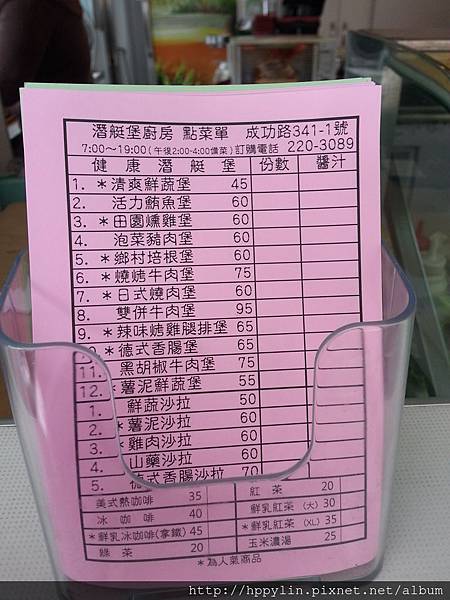 潛艇堡廚房 點菜單 成功路341-1號
7:00～19:00(午後2:00-4:00備菜)訂購電話 220-3089
健康潛艇堡 份數 醬汁
1. *清爽鮮蔬堡 45
2. 活力鮪魚堡 60
3. *田園燻雞堡 60
4. 泡菜豬肉堡 60
5. *鄉村培根堡 60
6. *燒烤牛肉堡 75
7. *日式燒肉堡 60
8. 雙併牛肉堡 95
9. *辣味烤雞腿排堡 65
*德式香腸堡 65
11. 黑胡椒牛肉堡 75
12. *薯泥鮮蔬堡 55
1. 鮮蔬沙拉 50
2. *薯泥沙拉 60
3. *雞肉沙拉 60
4. 山藥沙拉 60
5. 德式香腸沙拉 70
美式熱咖啡 35 紅茶 20
冰咖啡 40 鮮乳紅茶(大) 30
*鮮乳冰咖啡(拿鐵) 45 *鮮乳紅茶(XL) 35
綠茶 20 玉米濃湯 25
*為人氣商品
http://hppylin.pixnet.net/album